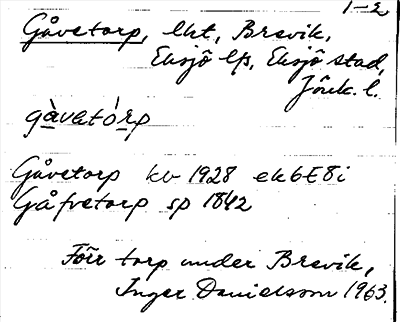 1-2
Gåvetorp, lht, Brevik,
Eksjö lfs, Eksjö stad,
Jönk. l.
gàvetórp
Gåvetorp kv 1928 ek6E8i
Gåfvetorp sp 1842
Förr torp under Brevik,
Inger Danielsson 1963.